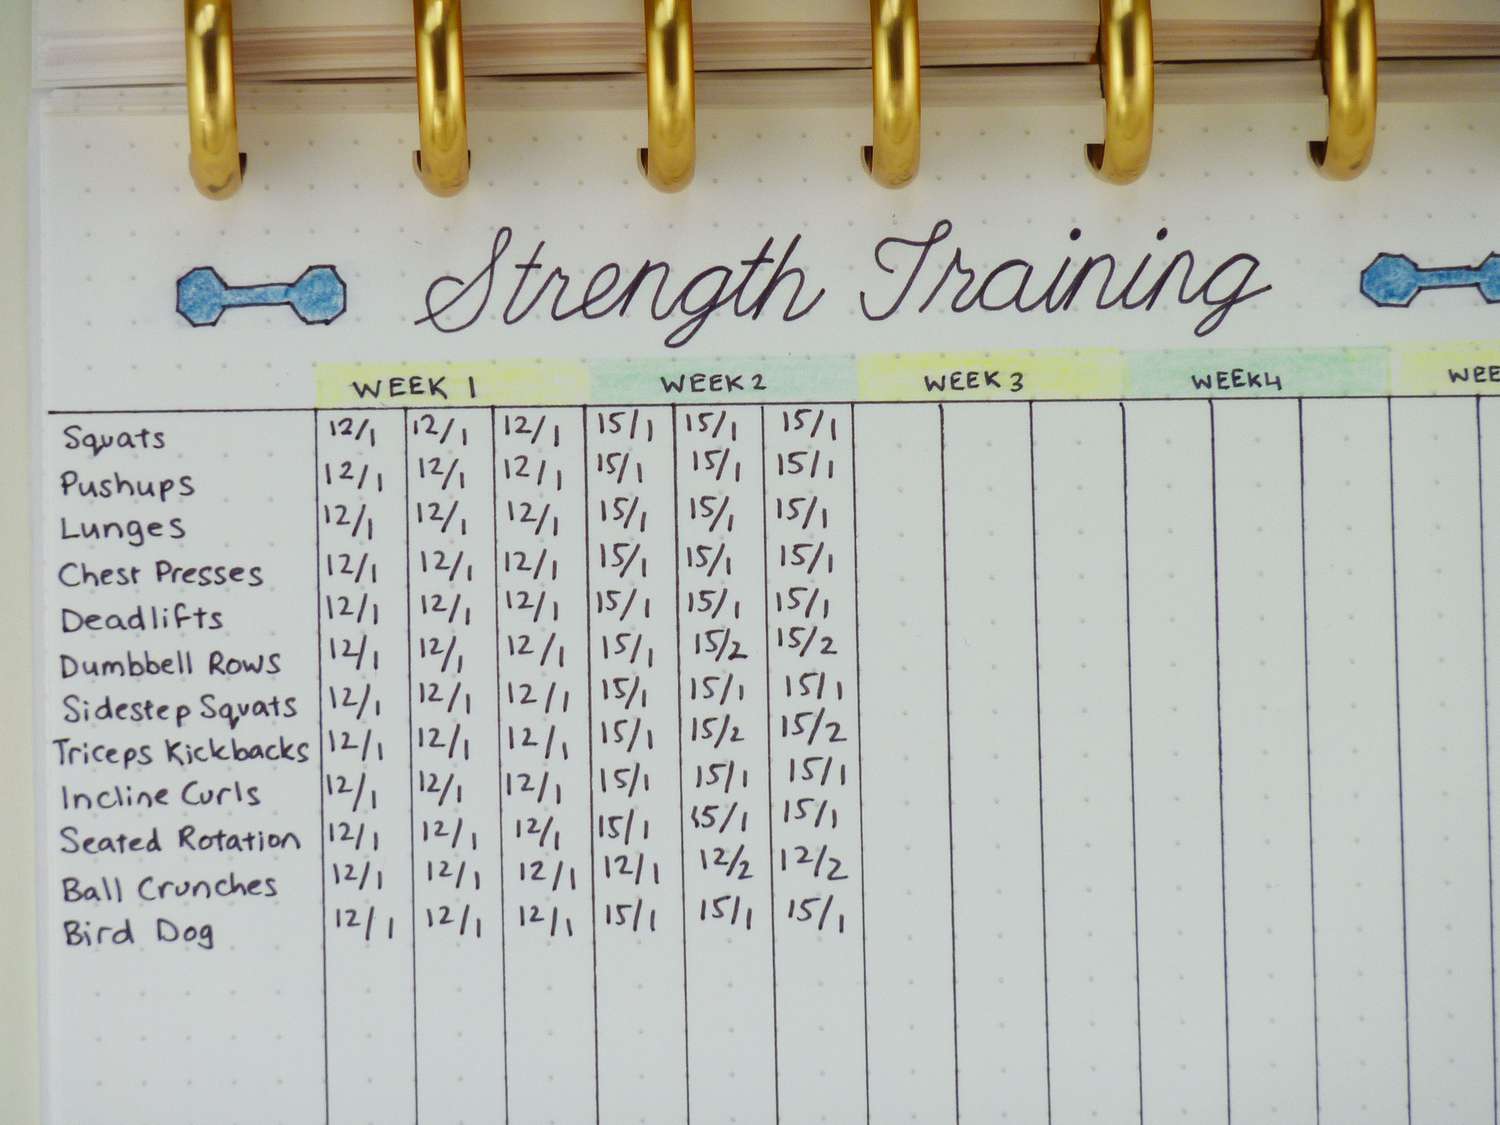 Strength Training
WEEK 1 WEEK 2 WEEK 3 WEEK 4 WEE
Squats 12/1 12/1 12/1 15/1 15/1 15/1
Pushups 12/1 12/1 12/1 15/1 15/1 15/1
Lunges 12/1 12/1 12/1 15/1 15/1 15/1
Chest Presses 12/1 12/1 12/1 15/1 15/1 15/1
Deadlifts 12/1 12/1 12/1 15/1 15/1 15/1
Dumbbell Rows 12/1 12/1 12/1 15/1 15/2 15/2
Sidestep Squats 12/1 12/1 12/1 15/1 15/1 15/1
Triceps Kickbacks 12/1 12/1 12/1 15/1 15/2 15/2
Incline Curls 12/1 12/1 12/1 15/1 15/1 15/1
Seated Rotation 12/1 12/1 12/1 15/1 15/1 15/1
Ball Crunches 12/1 12/1 12/1 12/1 12/2 12/2
Bird Dog 12/1 12/1 12/1 15/1 15/1 15/1